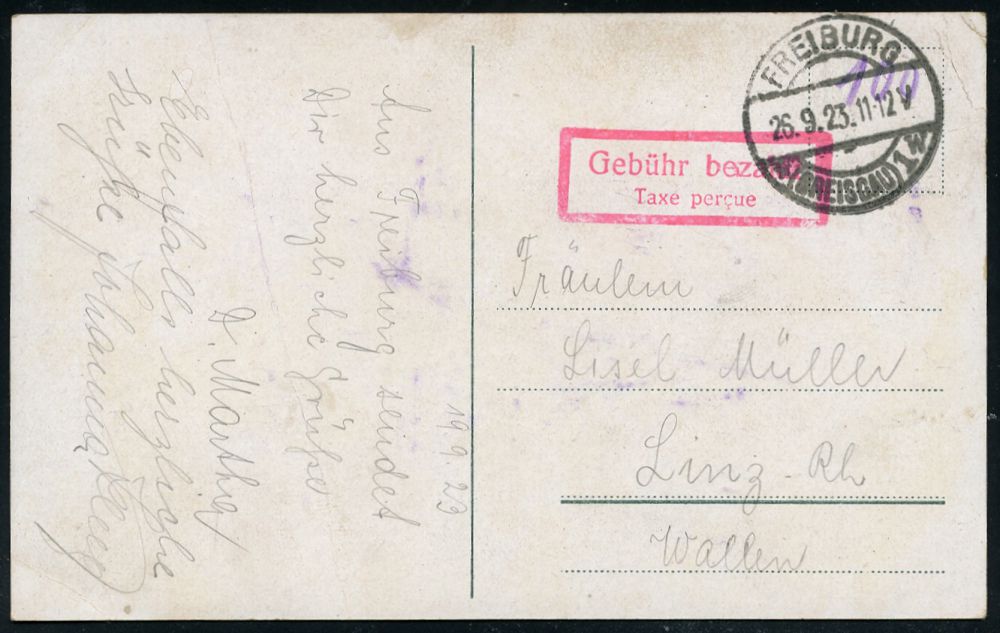 19.9.23
Aus Freiburg sendet
Dir herzliche Grüße
D. Martha
Ebenfalls herzliche
Grüße Johanna
FREIBURG
26.9.23.11-12V
(BREISGAU) 1W
100
Gebühr bezahlt
Taxe perçue
Fräulein
Lisel Müller
Linz-Rh
Wallen